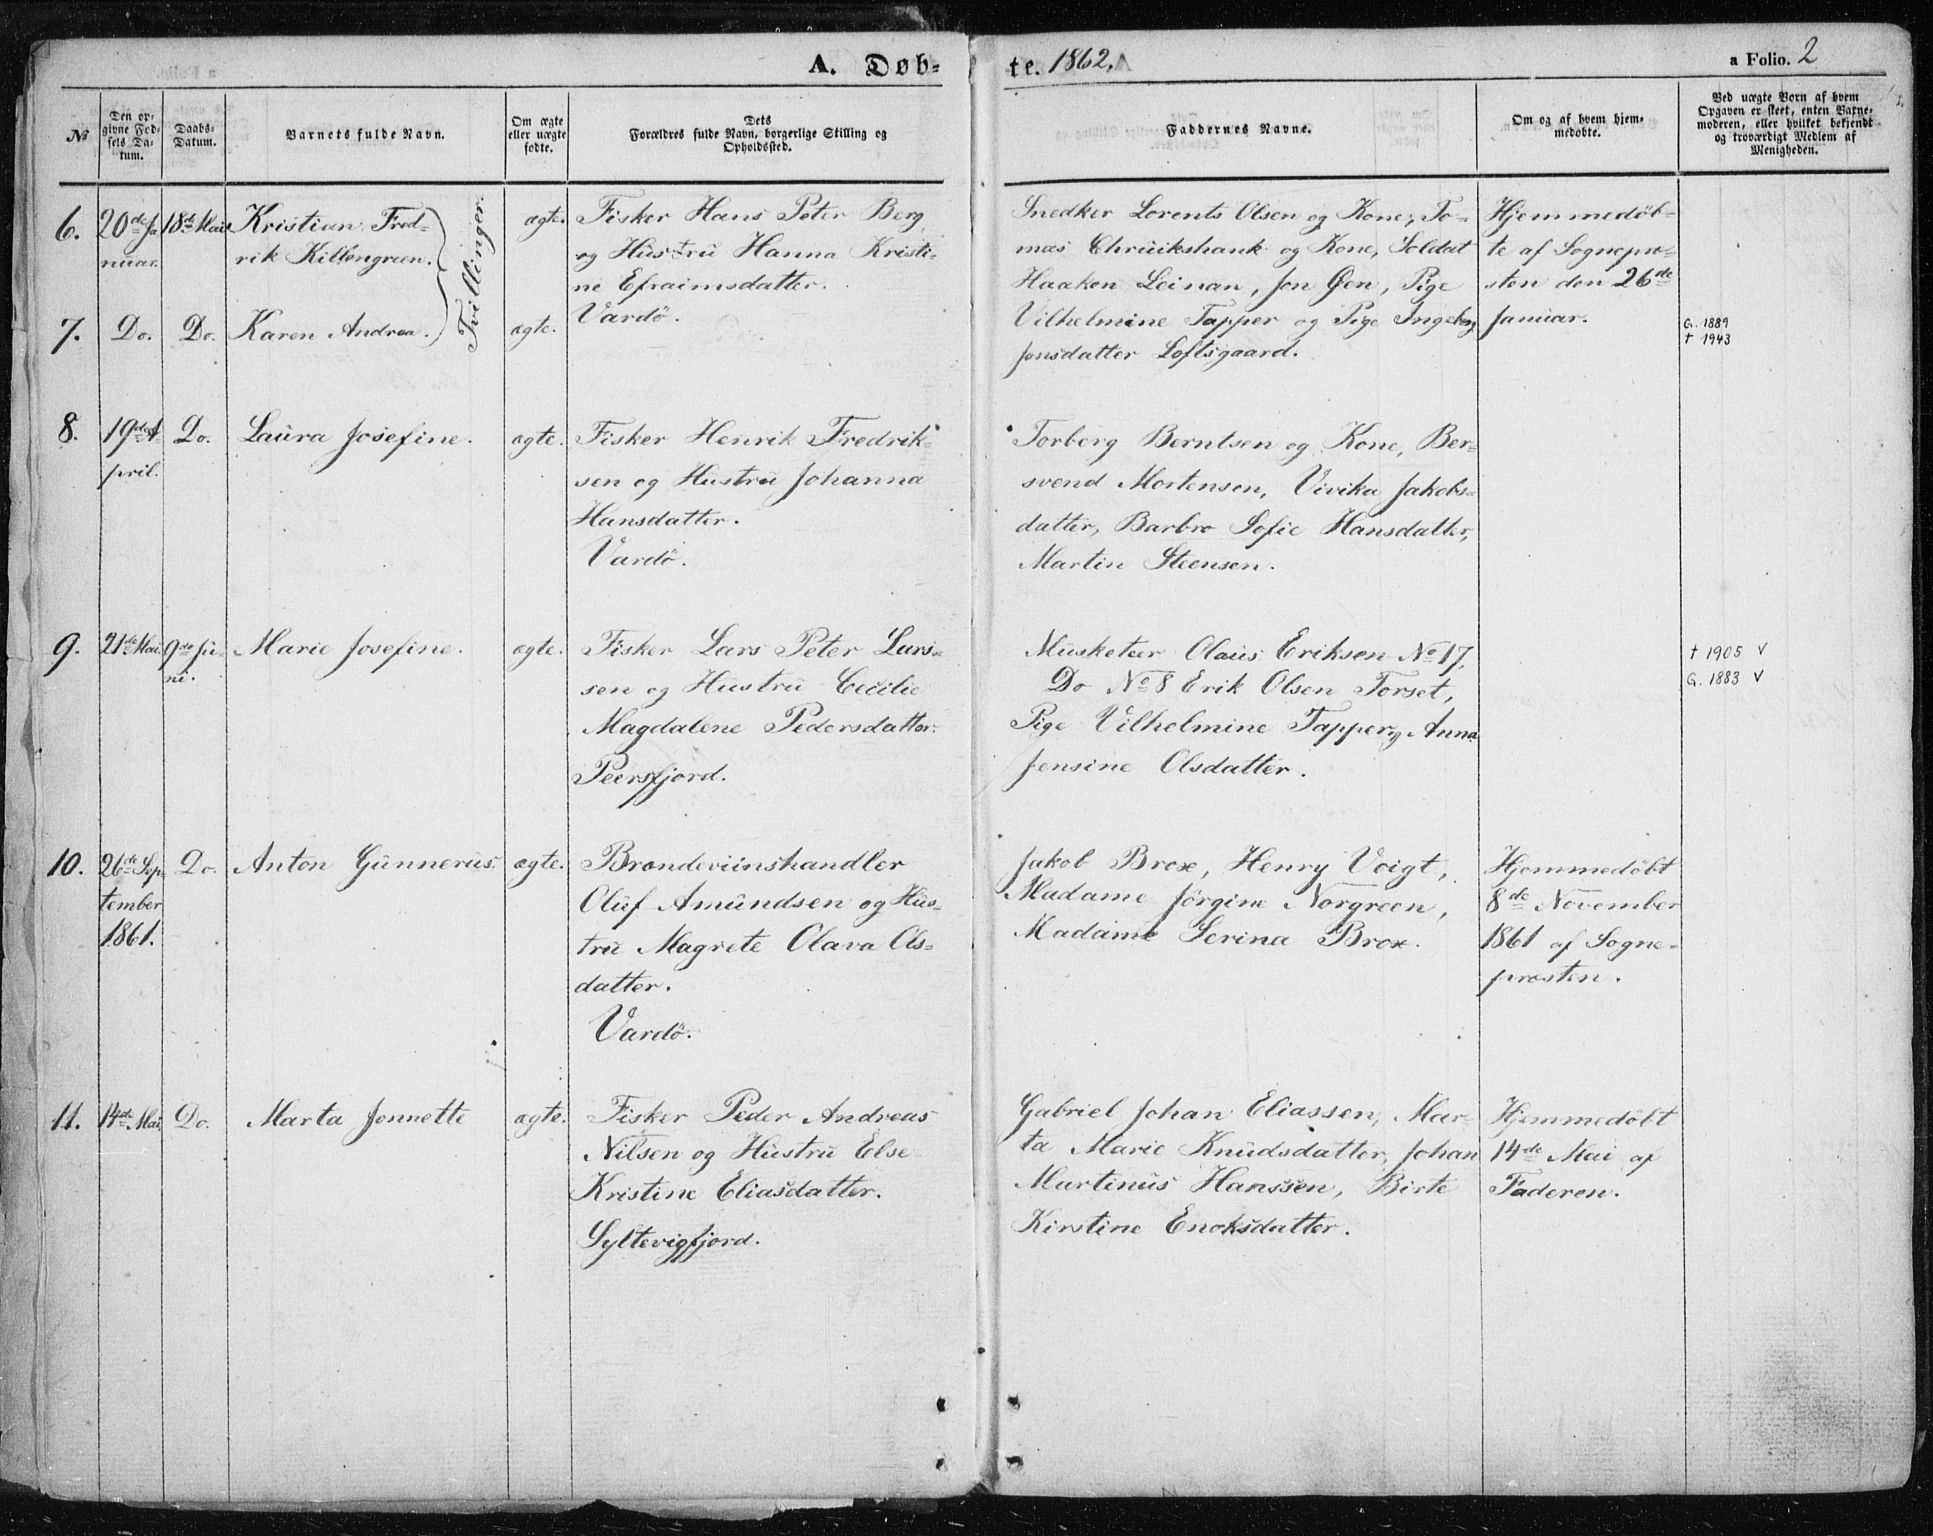 A. Døb-
te. 1862.
a Folio. 2
№
Den op-
givne Fød-
sels Da-
tum.
Daabs-
Datum.
Barnets fulde Navn.
Om ægte
eller uægte
fødte.
Dets
Forældres fulde Navn, borgerlige Stilling og
Opholdssted.
Faddernes Navne.
Om og af hvem hjem-
medøbte.
Ved uægte Born af hvem
Opgaven er skeet, enten Barne-
moderen, eller hvilket bekjendt
og troværdigt Medlem af
Menigheden.
6.
20de Ja
nuar.
18de Mai
Kristian Fred-
rik Killengreen.
Tvillinger.
ægte.
Fisker Hans Peter Berg
og Hustru Hanna Kristi-
ne Efraimsdatter.
Vardö.
Snedker Lorents Olsen og Kone, To-
mas Chruikshank og Kone, Soldat
Haakon Leinan, Jon Øen, Pige
Vilhelmine Tapper og Pige Ingebog
Jonsdatter Loftsgaard.
Hjemmedöb-
te af Sognepræ-
sten den 26de
Januar.
7.
Do.
Do.
Karen Andrea.
ægte.
G. 1889
† 1943
8.
19de A-
pril.
Do.
Laura Josefine.
ægte.
Fisker Henrik Fredrik-
sen og Hustru Johanna
Hansdatter.
Vardö.
Torberg Berntsen og Kone, Ber-
svend Mortensen, Vivika Jakobs-
datter, Barbro Sofie Hansdatter,
Martin Steensen.
9.
21de Mai.
9de Ju-
ni.
Marie Josefine.
ægte.
Fisker Lars Peter Lars-
sen og Hustru Cecilie
Magdalene Pedersdatter.
Peersfjord.
Musketeer Olaus Eriksen No 17,
Do No 8 Erik Olsen Torset,
Pige Vilhelmine Tapper og Anna
Jensine Olsdatter.
† 1905 V
G. 1883 V
10.
26de Sep-
tember
1861.
Do.
Anton Gunnerus.
ægte.
Brændeviinshandler
Oluf Amundsen og Hus-
tru Magrete Olava Ols-
datter.
Vardö.
Jakob Brox, Henry Voigt,
Madame Jörgine Norgreen,
Madame Serina Brox.
Hjemmedöbt
8de November
1861 af Sogne-
præsten.
11.
14de Mai
Do.
Marta Jonnette
ægte.
Fisker Peder Andreas
Nilsen og Hustru Else
Kristine Eliasdatter.
Syltevigfjord.
Gabriel Johan Eliassen, Mar-
ta Marie Knudsdatter, Johan
Martinus Hanssen, Birte
Kirstine Enoksdatter.
Hjemmedöbt
14de Mai af
Faderen.